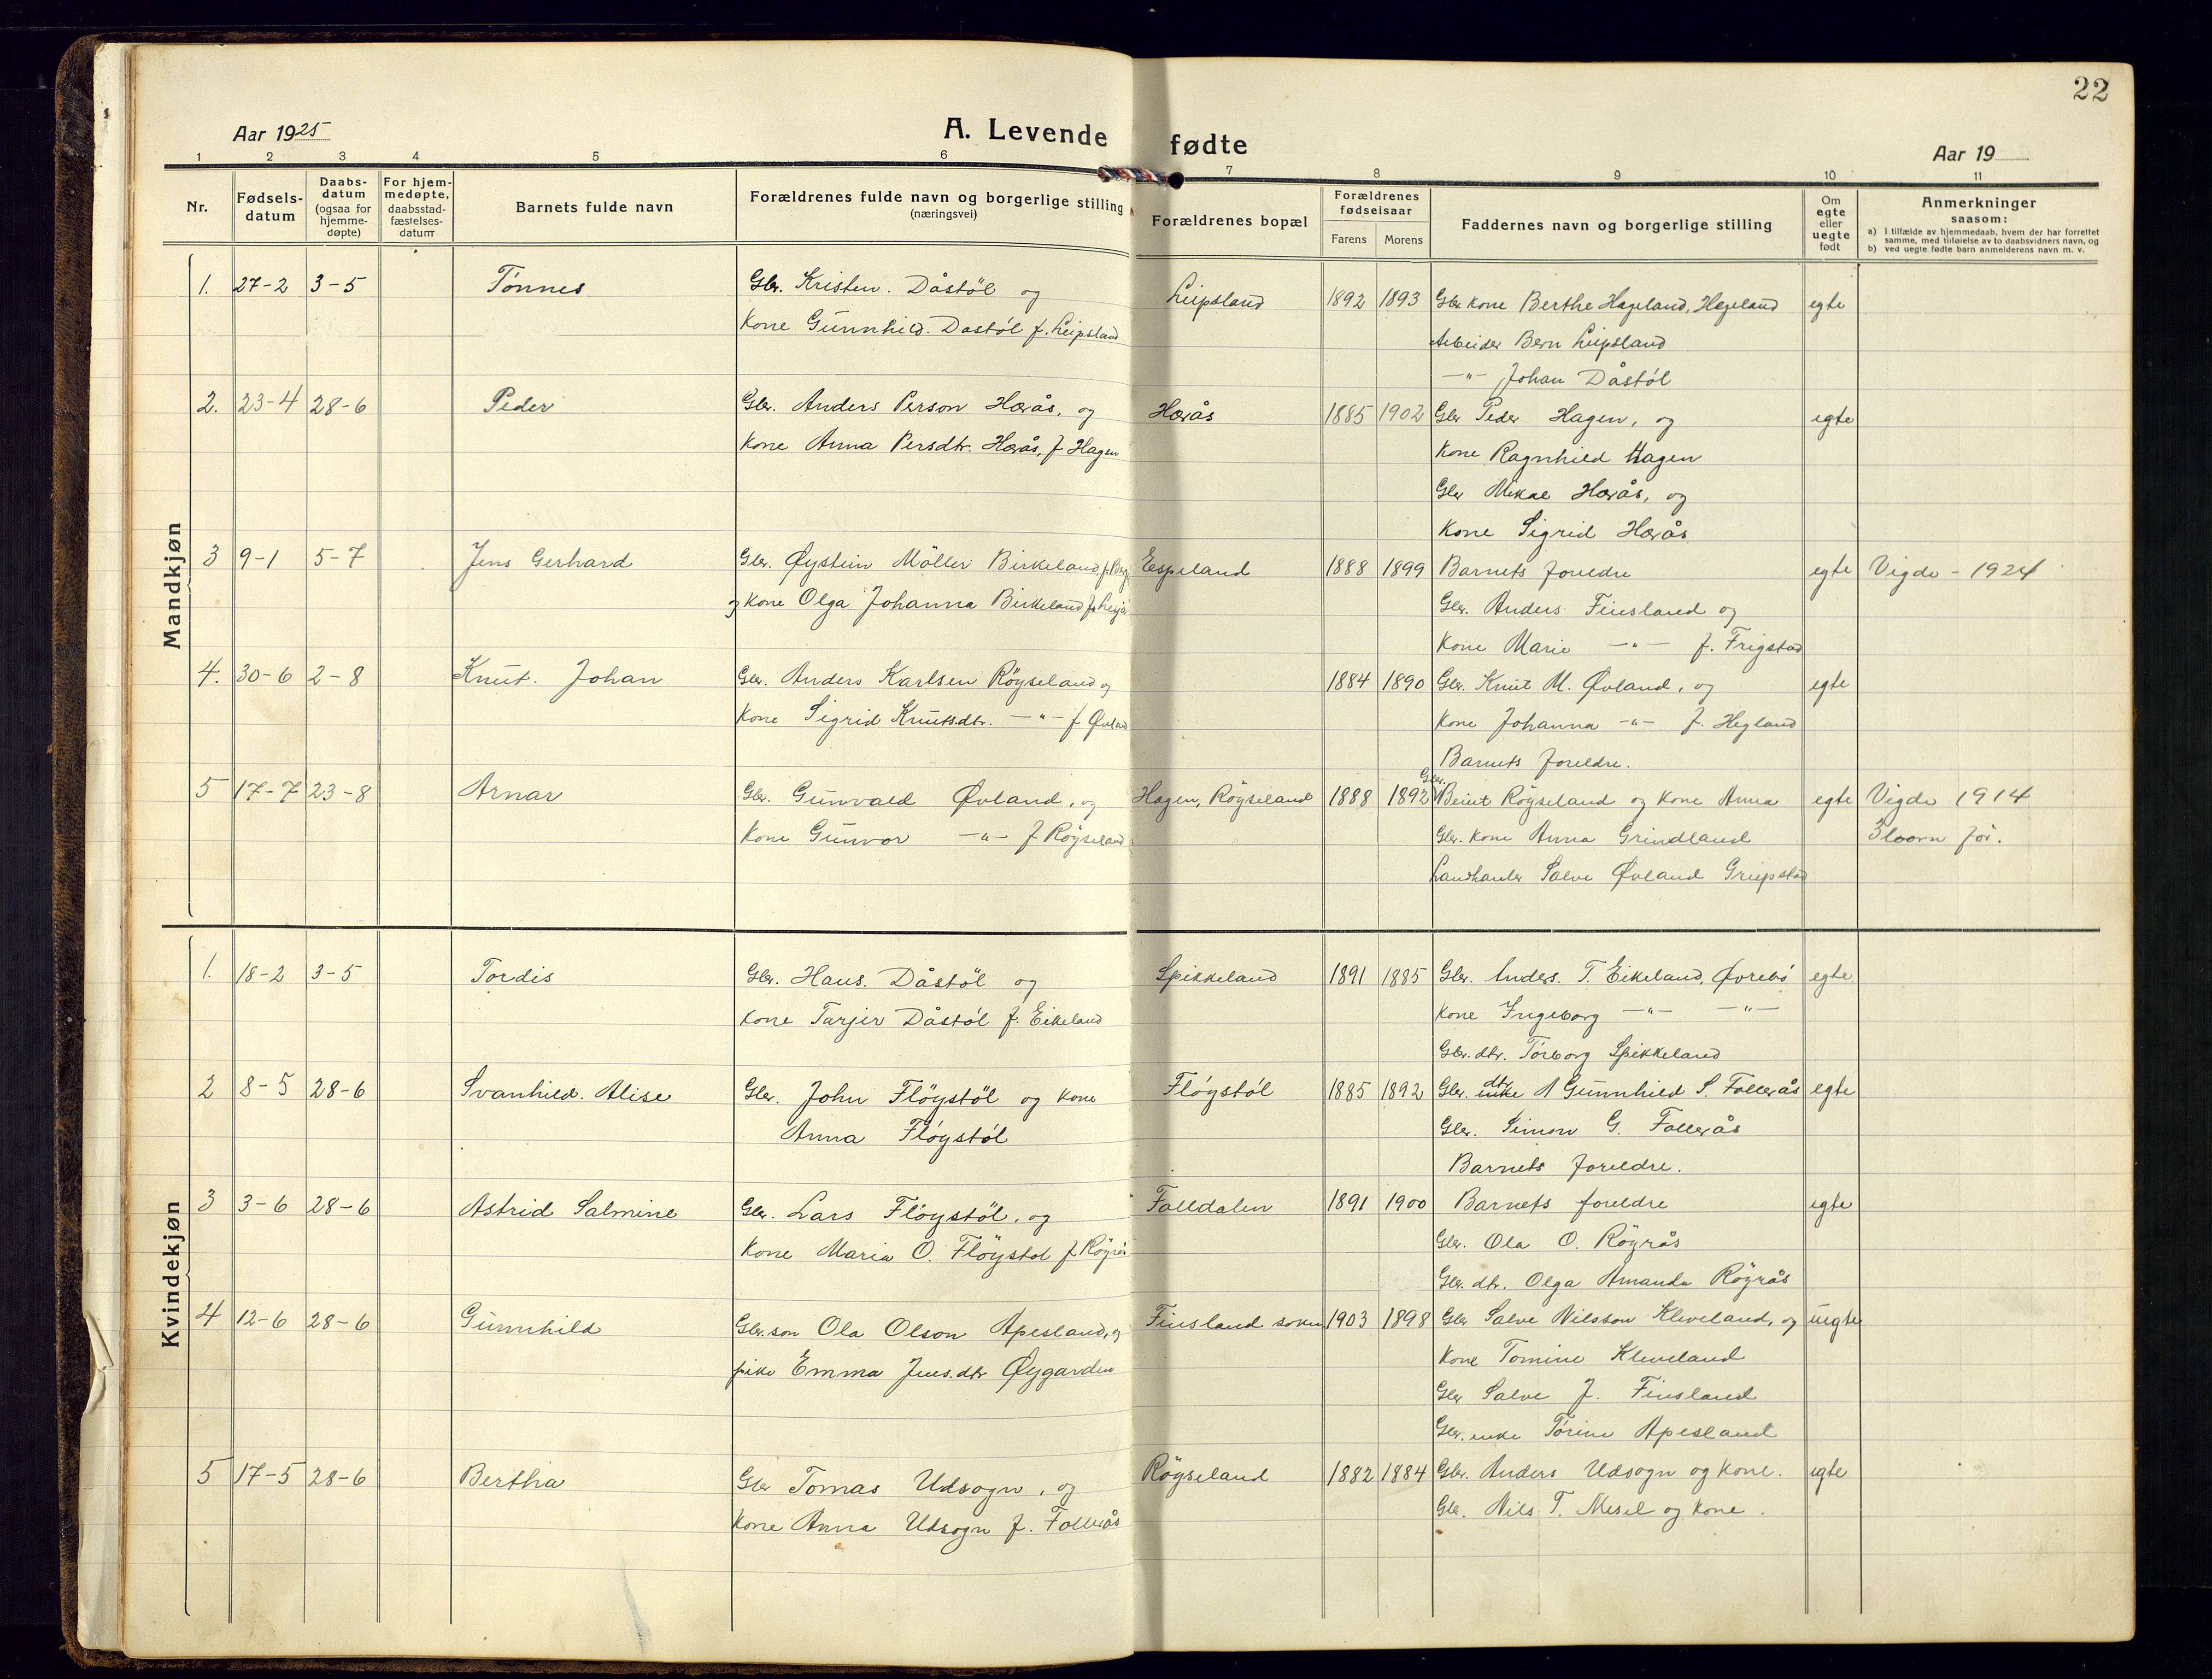 22
Aar 1925
A. Levende fødte
Aar 19
1 2 3 4 5 6 7 8 9 10 11
Nr.
Fødsels-
datum
Daabs-
datum
(ogsaa for
hjemme-
døpte)
For hjem-
medøpte,
daabsstad-
fæstelses-
datum
Barnets fulde navn
Forældrenes fulde navn og borgerlige stilling
(næringsvei)
Forældrenes bopæl
Forældrenes
fødselsaar
Farens Morens
Faddernes navn og borgerlige stilling
Om
egte
eller
uegte
født
Anmerkninger
saasom:
a) i tilfælde av hjemmedaab, hvem der har forrettet
samme, med tilføielse av to daabsvidners navn, og
b) ved uegte fødte barn anmelderens navn m. v.
Mandkjøn
1. 27-2 3-5 Tønnes Gbr. Kristen. Dåstøl og Leipsland 1892 1893 Gbr kone Berthe Hageland, Hegeland egte
Kone Gunnhild. Dastøl f. Leipsland Arbeider Bern Leipsland
-"- Johan Dåstøl
2. 23-4 28-6 Peder Gbr. Anders Person Hærås, og Hærås 1885 1902 Gbr Peder Hagen, og egte
Kone Anna Persdtr. Hærås, f Hagen Kone Ragnhild Hagen
Gbr Mikal Hærås, og
Kone Sigrid Hærås
3 9-1 5-7 Jens Gerhard Gbr. Øystein Möller Birkeland, f. Berg Espeland 1888 1899 Barnets foreldre egte Vigde - 1924
og Kone Olga Johanna Birkeland Gbr. Anders Finsland og
Kone Marie -"- f. Frigstad
4. 30-6 2-8 Knut. Johan Gbr. Anders Karlsen Röyseland og 1884 1890 Gbr. Knut M. Øvland, og egte
Kone Sigrid Knutsdtr. -"- f Øvland Kone Johanna -"- f. Hegland
Barnets foreldre.
5 17-7 23-8 Arnar Gbr. Gunvald Øvland, og Hagen, Röyseland 1888 1892 Gbr. Beint Röyseland og Kone Anna egte Vigde 1914
Kone Gunvor -"- f Röyseland Gbr. Kone Anna Grindland 3 born för.
Landhandler Salve Øvland Greipstad
Kvindekjøn
1. 18-2 3-5 Tordis Gbr. Hans. Dåstøl og Spikkeland 1891 1885 Gbr. Anders. T. Eikeland, Øvrebö egte.
Kone Tarjer Dåstöl f. Eikeland Kone Ingeborg -"- -"-
Gbr. dtr. Torborg Spikkeland
2 8-5 28-6 Svanhild. Alise Gbr. John Flöystöl og kone Flöystöl 1885 1892 Gbr. dtr Gunnhild S. Follerås egte
Anna Flöystöl Gbr. Simon G. Follerås
Barnets foreldre.
3 3-6 28-6 Astrid Salmine Gbr. Lars Flöystöl, og Folldalen 1891 1900 Barnets foreldre egte
Kone Maria O. Flöystol f Röyrås Gbr. Ola O. Röyrås
Gbr. dtr. Olga Amanda Röyrås
4 12-6 28-6 Gunnhild Gbr. son Ola Olson Apesland, og Finsland sokn 1903 1898 Gbr Salve Nilsson Kleveland, og uegte
pike Emma Jensdtr Øygarden Kone Tomine Kleveland
Gbr Salve J. Finsland
Gbr. enke Torine Apesland
5 17-5 28-6 Bertha Gbr Tomas Udsogn, og Röyseland 1882 1884 Gbr. Anders Udsogn og Kone. egte
Kone Anna Udsogn f. Follerås Gbr. Nils T. Mesel og Kone.